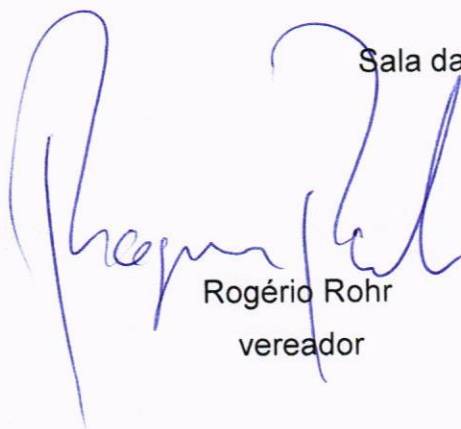 Sala da
Rogério Rohr
vereador